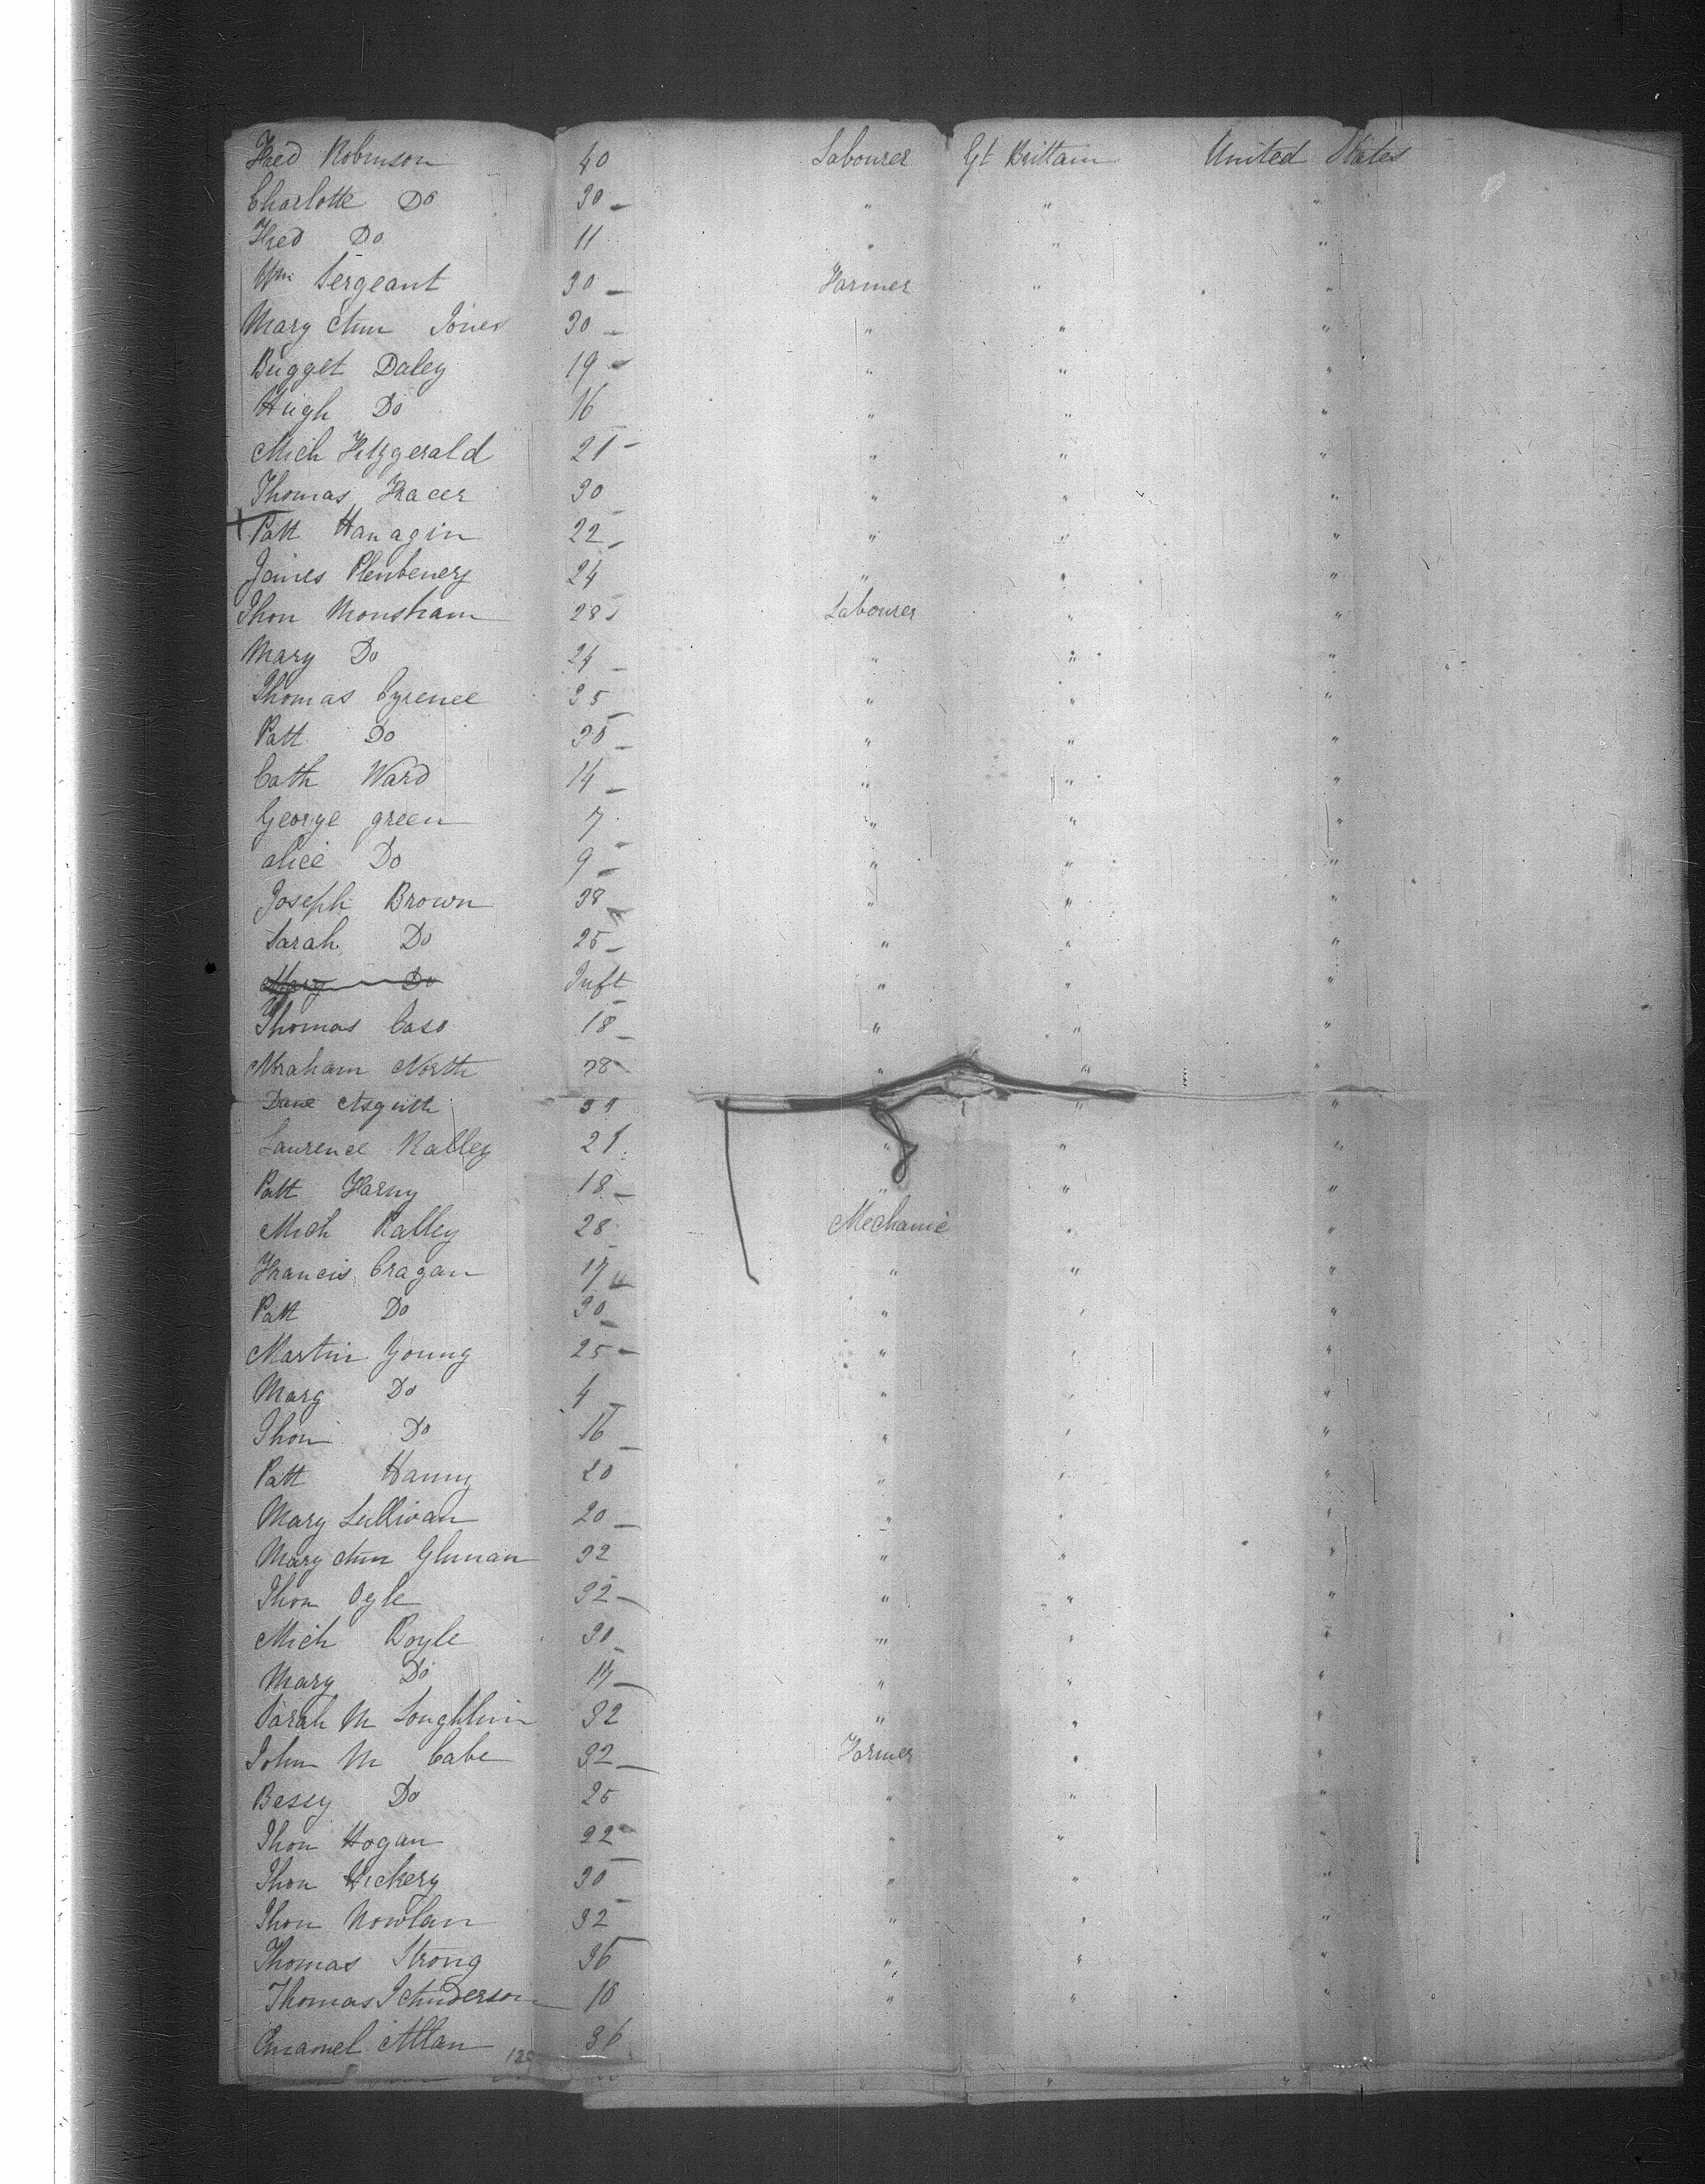 Fred Robinson 40 Labourer Gt Brittain United States
Charlotte Do 30 " " "
Fred Do 11 " " "
Wm Sergeant 30 Farmer " "
Mary Ann Jones 30 " " "
Bugget Daley 19 " " "
Hugh Do 16 " " "
Mich Fitzgerald 21 " " "
Thomas Fracer 30 " " "
Patt Hanagin 22 " " "
James 24 " " "
Thon Monsham 28 Labourer " "
Mary Do 24 " " "
Thomas Cyrenee 35 " " "
Patt Do 30 " " "
Cath Ward 14 " " "
George green 7 " " "
alice Do 9 " " "
Joseph Brown 38 " " "
Sarah Do 25 " " "
Mary Do Inft " " "
Thomas Caso 18 " " "
Abraham North 28 " " "
Dave Asquith " "
Laurence Ralley 21 " " "
Patt Harny 18 " " "
Mich Ralley 28 Mechanic " "
Francis Cragan 17 " " "
Patt Do 30 " " "
Martin Young 25 " " "
Mary Do 4 " " "
Thon Do 16 " " "
Patt Hanny 20 " " "
Mary Sullivan 20 " " "
Mary Ann Gluman 32 " " "
Thon Ogle 32 " " "
Mich Boyle 30 " " "
Mary Do 17 " " "
Sarah M Loughlin 32 " " "
John M Cabe 32 Farmer " "
Bessy Do 25 " " "
Thon Hogan 22 " " "
Thon Hickery 30 " " "
Thon Nowlan 32 " " "
Thomas Strong 36 " " "
Thomas J Anderson 10 " " "
Enamel Allan 36